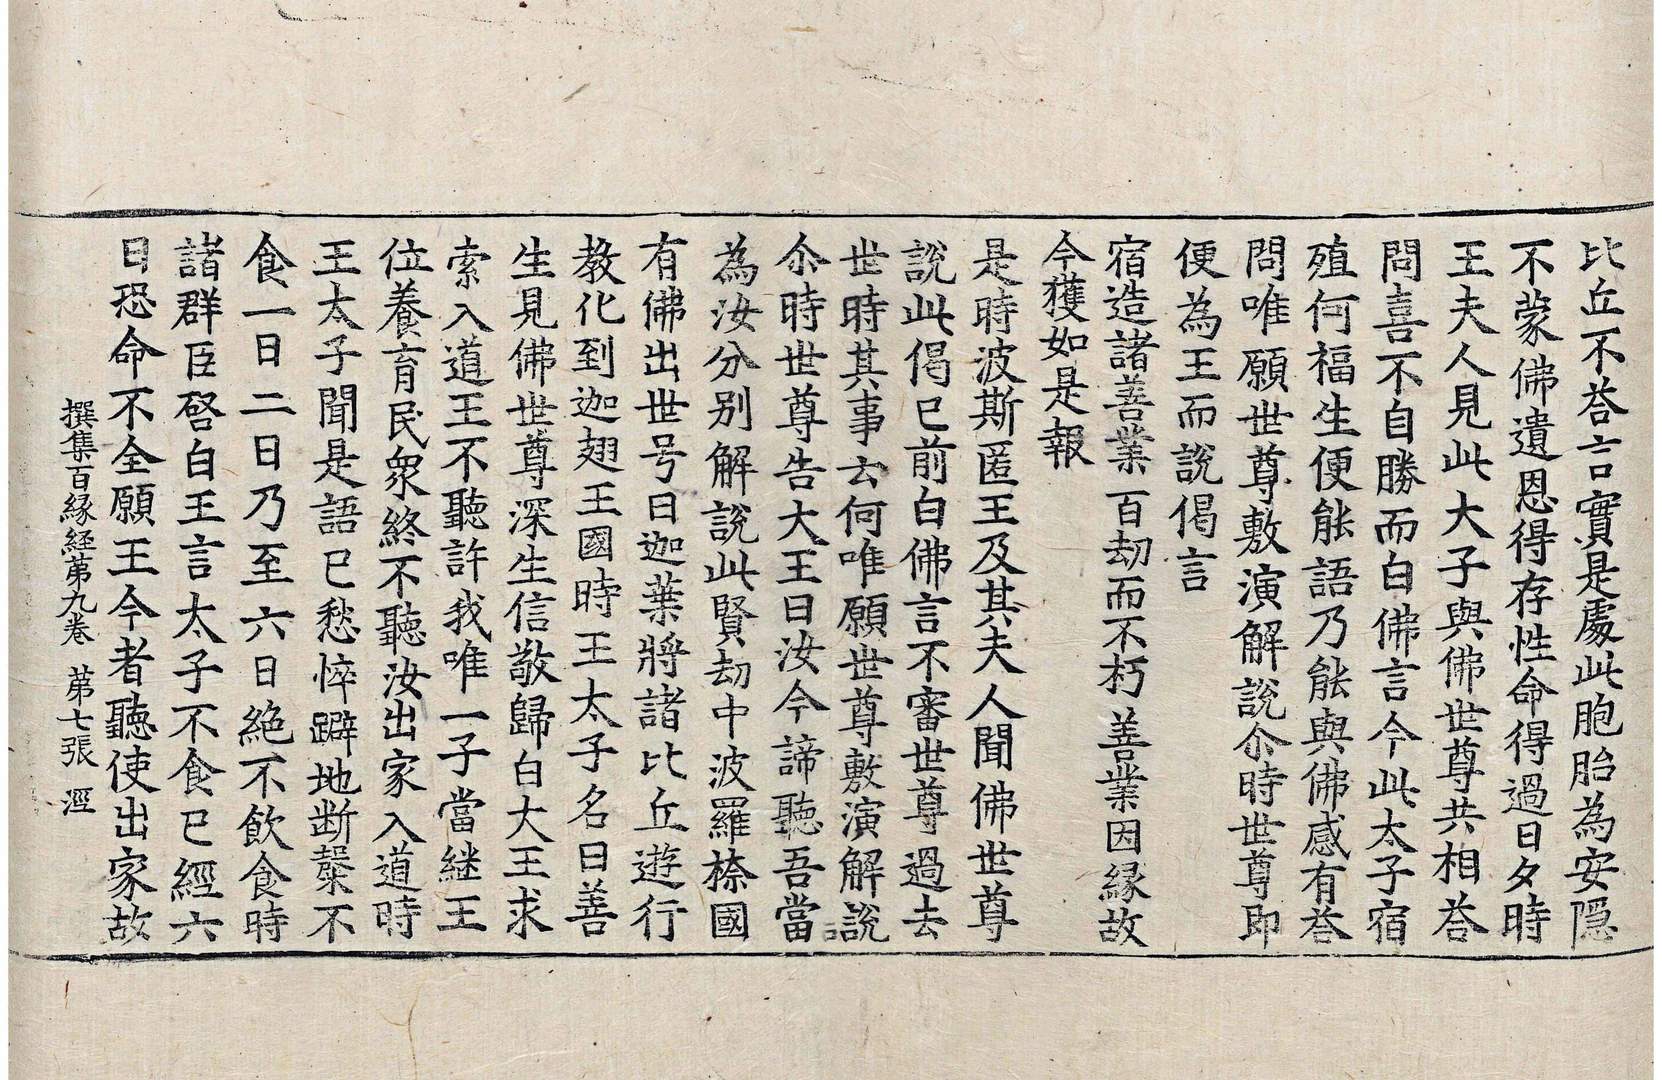 比丘不荅言實是處此胞胎為安隱
不蒙佛遺恩得存性命得過日夕時
王夫人見此大子與佛世尊共相荅
問喜不自勝而白佛言今此太子宿
殖何福生便能語乃能與佛感有荅
問唯願世尊敷演解說尒時世尊即
便為王而說偈言
宿造諸善業 百劫而不朽 善業因緣故
今獲如是報
是時波斯匿王及其夫人聞佛世尊
說此偈已前白佛言不審世尊過去
世時其事云何唯願世尊敷演解說
尒時世尊告大王曰汝今諦聽吾當
為汝分別解說此賢劫中波羅㮈國
有佛出世号曰迦葉將諸比丘遊行
教化到迦翅王國時王太子名曰善
生見佛世尊深生信敬歸白大王求
索入道王不聽許我唯一子當継王
位養育民衆終不聽汝出家入道時
王太子聞是語已愁悴躃地断漿不
食一日二日乃至六日絶不飲食時
諸群臣啓白王言太子不食已經六
日恐命不全願王今者聽使出家故
撰集百緣経苐九卷 苐七張 涇